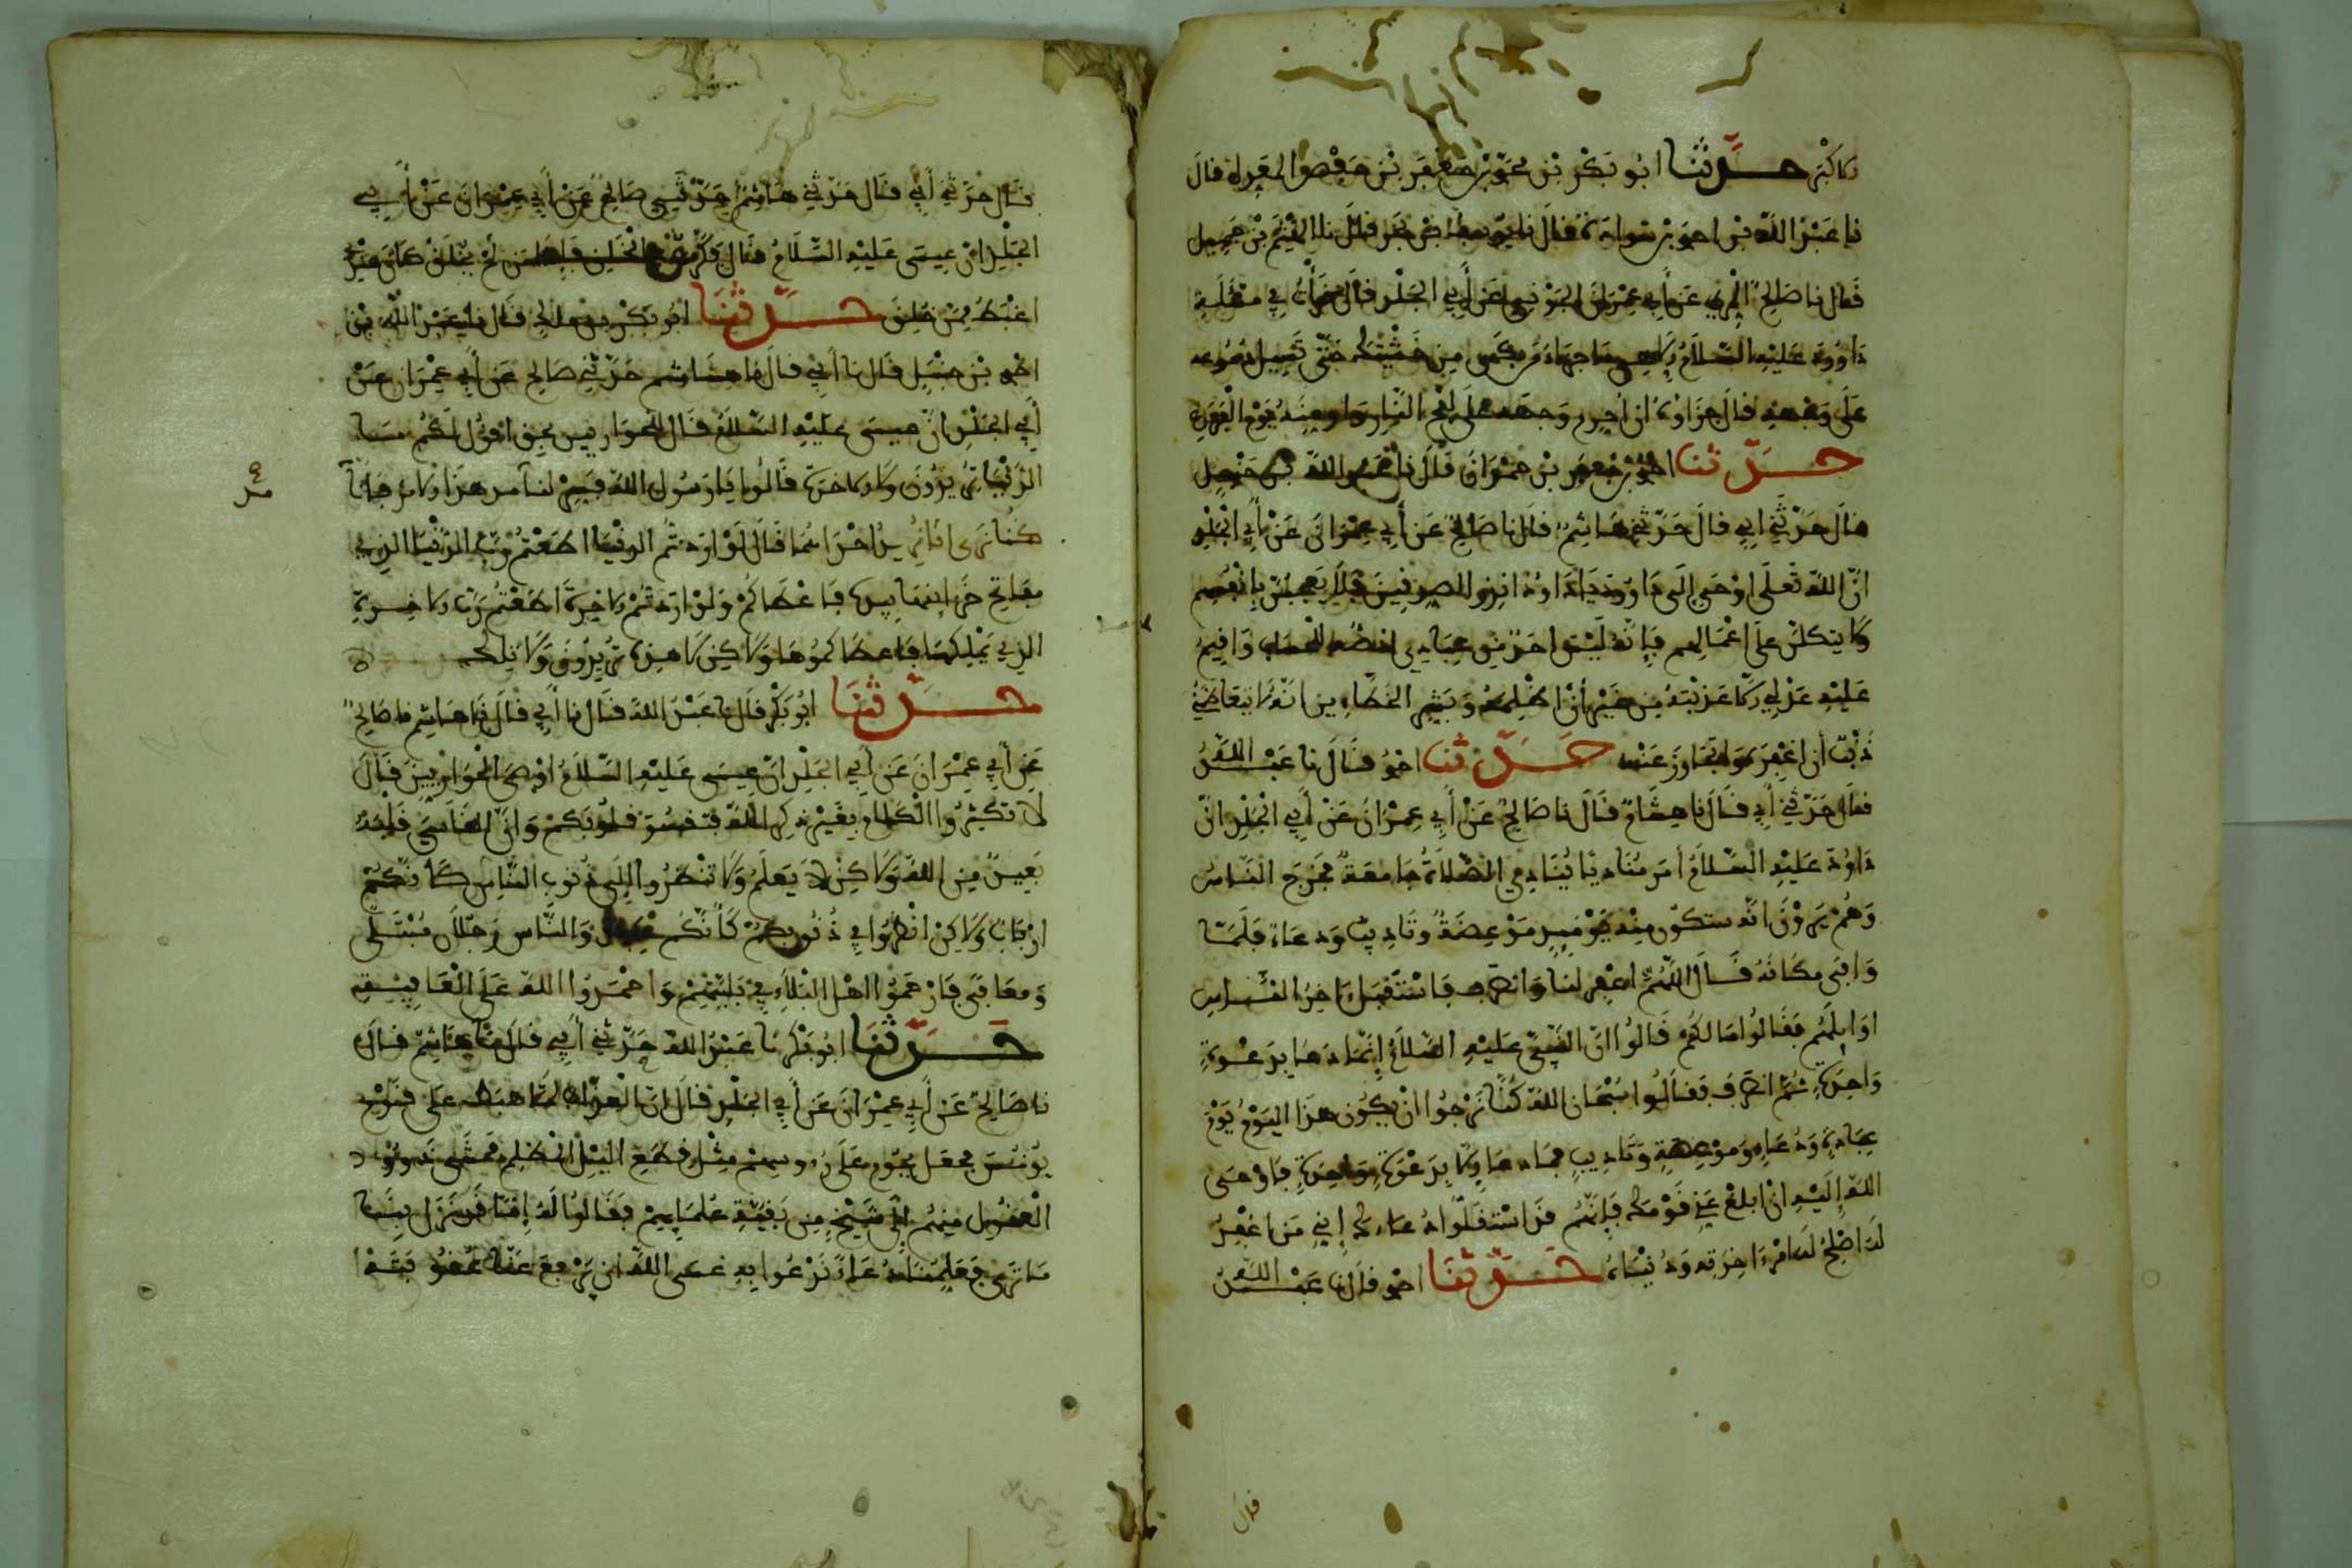 الاكبر حدثنا ابو بكر بن محمد بن جعفر بن حفص المعدل قال
نا عبد الله بن احمد بن سوادة قال نا بن جميل
قال نا صالح المري عن ابي عمران الجوني عن ابي الجلد قال قرأت في مسئلة
داوود عليه السلام الهي ما جزاء من بكى من خشيتك حتى تسيل دموعه
على وجهه قال جزاوه ان احرم وجهه على لفح النار وان اومنه يوم الفزع
حدثنا احمد بن جعفر بن حمدان قال نا عبد الله بن حنبل
قال حدثني ابي قال حدثني هاشم قال نا صالح عن ابي عمران عن ابي الجلد
ان الله تعلى اوحى الى داوود يا داوود انذر الصديقين فلا يعجبن بانفسهم
ولا يتكلن على اعمالهم فانه ليس احد من عبادي انصبه للحساب واقيم
عليه عدلي الا عذبته من غير ان اظلمه وبشر الخطاءين انه لا يتعاظمني
ذنب ان اغفره واتجاوز عنه حدثنا احمد قال نا عبد الله
قال حدثني ابي قال نا هشام قال نا صالح عن ابي عمران عن ابي الجلد ان
داود عليه السلام امر مناديا ينادي الصلاة جامعة فخرج الناس
وهم يرون انه ستكون منه يوميذ موعضة وتاديب ودعاء فلما
وافى مكانه قال اللهم اغفر لنا وانصرف فاستقبل ءاخر الناس
اوايلهم فقالوا ما لكم قالوا ان النبي عليه السلام انما دعا بدعوة
واحدة ثم انصرف فقالوا سبحان الله كنا نرجوا ان يكون هذا اليوم يوم
عبادة ودعاء وموعضة وتاديب فما دعا الا بدعوة واحدة فاوحى
الله اليه ان ابلغ عني قومك فانهم قد استقلوا دعاءك اني من اغفر
له اصلح له امر ءاخرته ودنياه حدثنا احمد قال نا عبد الله
قال
قال حدثني ابي قال حدثني هاشم حدثني صالح عن ابي عمران عن ابي
الجلد ان عيسى عليه السلام قال فكرت في الخلق فاذا من لم يخلق كان عندي
اغبط ممن خلق حدثنا ابو بكر بن مالك قال نا عبد الله بن
احمد بن حنبل قال نا ابي قال نا هاشم حدثني صالح عن ابي عمران عن
ابي الجلد ان عيسى عليه السلام قال للحواريين بحق اقول لكم ما
الدنيا تريدون ولا الاخرة قالوا يا رسول الله فسر لنا هذا الامر فانا
كنا نرى انا نريد احداهما قال لو اردتم الدنيا اطعتم رب الدنيا الذي
مفاتح خزاينها بيده فاعطاكم ولو اردتم الاخرة اطعتم رب الاخرة
الذي يملكها فاعطاكموها ولاكن لا هذه تريدون ولا تلك
حدثنا ابو بكر قال نا عبد الله قال نا ابي قال نا هاشم نا صالح
عن ابي عمران عن ابي الجلد ان عيسى عليه السلام اوصى الحواريين فقال
لا تكثروا الكلام بغير ذكر الله فتقسو قلوبكم وان القاسي قلبه
بعيد من الله ولاكن لا يعلم ولا تنظروا الى ذنوب الناس كانكم
ارباب ولاكن انظروا في ذنوبكم كانكم عبيد والناس رجلان مبتلى
ومعافى فارحموا اهل البلاء في بليتهم واحمدوا الله على العافية
حدثنا ابو بكر نا عبد الله حدثني ابي قال نا هاشم قال
نا صالح عن ابي عمران عن ابي الجلد قال ان العذاب لما هبط على قوم
يونس فجعل يحوم على رءوسهم مثل قطع اليل المظلم فمشى ذوو
العقول منهم الى شيخ من بقية علمايهم فقالوا له انا قد نزل بنا
ما ترى فعلمنا دعاء ندعوا به عسى الله ان يرفع عنا